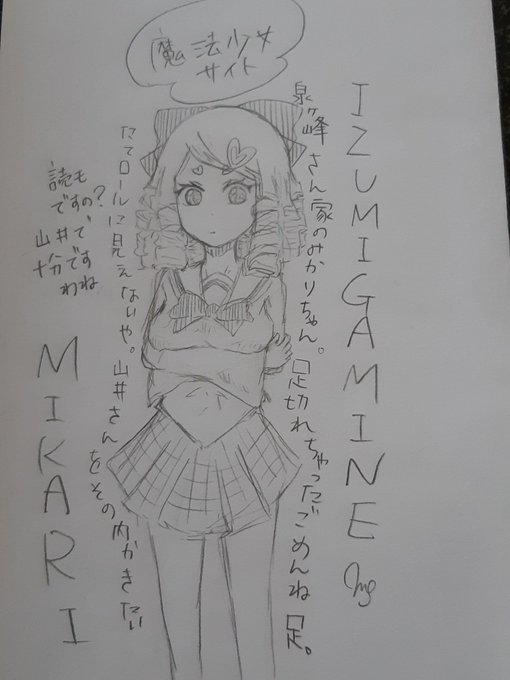 魔法少女
サイト
IZUMIGAMINE
泉ヶ峰さん家のみかりちゃん。足切れちゃったごめんね足。
たてロールに見えないや。山井さんをその内かきたい
読も
ですの?
山井で
十分です
わね
MIKARI